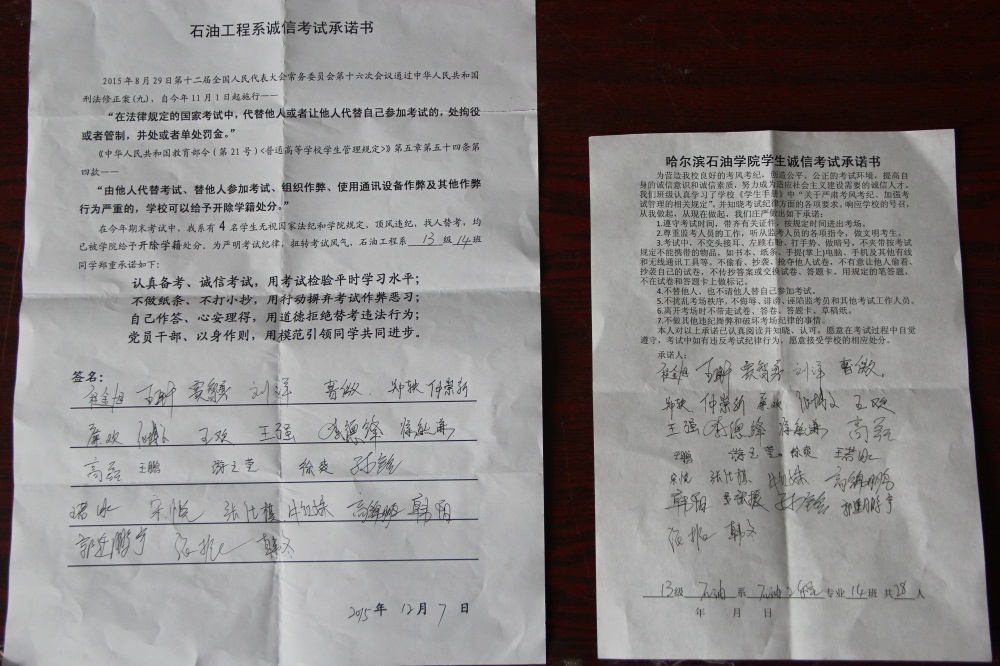 石油工程系诚信考试承诺书
2015年8月29日第十二届全国人民代表大会常务委员会第十六次会议通过中华人民共和国
刑法修正案(九)，自今年11月1日起施行——
“在法律规定的国家考试中，代替他人或者让他人代替自己参加考试的，处拘役
或者管制，并处或者单处罚金。”
《中华人民共和国教育部令（第21号）<普通高等学校学生管理规定>》第五章第五十四条第
四款——
“由他人代替考试、替他人参加考试、组织作弊、使用通讯设备作弊及其他作弊
行为严重的，学校可以给予开除学籍处分。”
在今年期末考试中，我系有4名学生无视国家法纪和学院规定，顶风违纪，找人替考，均
已被学院给予开除学籍处分。为严明考试纪律，扭转考试风气，石油工程系13级14班
同学郑重承诺如下：
认真备考、诚信考试，用考试检验平时学习水平；
不做纸条、不打小抄，用行动摒弃考试作弊恶习；
自己作答、心安理得，用道德拒绝替考违法行为；
党员干部、以身作则，用模范引领同学共同进步。
签名：
王珊 贾智勇 刘洋 曹傲 郑轶 仲崇新
王欢 王强 李德锋
高磊 王鹏 徐爽 孙铨
宋悦 高锦鹏 韩阳
韩文
2015年12月7日
哈尔滨石油学院学生诚信考试承诺书
为营造我校良好的考风考纪，创造公平、公正的考试环境，提高自
身的诚信意识和诚信素质，努力成为适应社会主义建设需要的诚信人才，
我们班级认真学习了学校《学生手册》中“关于严肃考风考纪、加强考
试管理的相关规定”，并知晓考试纪律方面的各项要求，响应学校的号召，
从我做起，从现在做起，我们庄严做出如下承诺：
1.遵守考试时间，带齐有关证件，按规定时间进出考场。
2.尊重监考人员的工作，听从监考人员的各项指令，做文明考生。
3.考试中，不交头接耳、左顾右盼、打手势、做暗号，不夹带按考试
规定不能携带的物品，如书本、纸条、手提(掌上)电脑、手机及其他有线
和无线通讯工具等。不偷看、抄袭、抢夺他人试卷，不有意让他人偷看、
抄袭自己的试卷，不传抄答案或交换试卷、答题卡。用规定的笔答题、
不在试卷和答题卡上做标记。
4.不替他人、也不请他人替自己参加考试。
5.不扰乱考场秩序，不侮辱、诽谤、诬陷监考员和其他考试工作人员。
6.离开考场时不带走试卷、答卷、答题卡、草稿纸。
7.不做其他违纪舞弊和破坏考场纪律的事情。
本人对以上承诺已认真阅读并知晓、认可，愿意在考试过程中自觉
遵守，考试中如有违反考试纪律行为，愿意接受学校的相应处分。
承诺人：
王珊 贾智勇 刘洋 曹傲
郑轶 仲崇新 王欢
王强 李德锋 高磊
王鹏 徐爽
宋悦 高锦鹏
韩阳 孙铨
韩文
13级 石油 系 石油工程 专业 14班 共28人
年 月 日